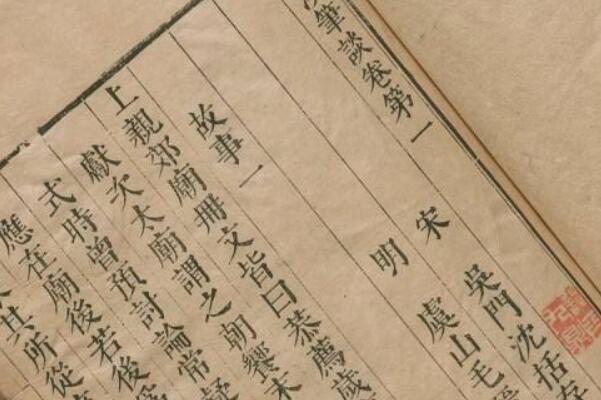 筆談卷第一
宋 吳門沈括存
明 虞山毛晉
故事一
上親郊廟冊文皆曰恭薦歲
獻次太廟謂之朝饗末
式時曾預討論常疑
應在廟後若後
其所從